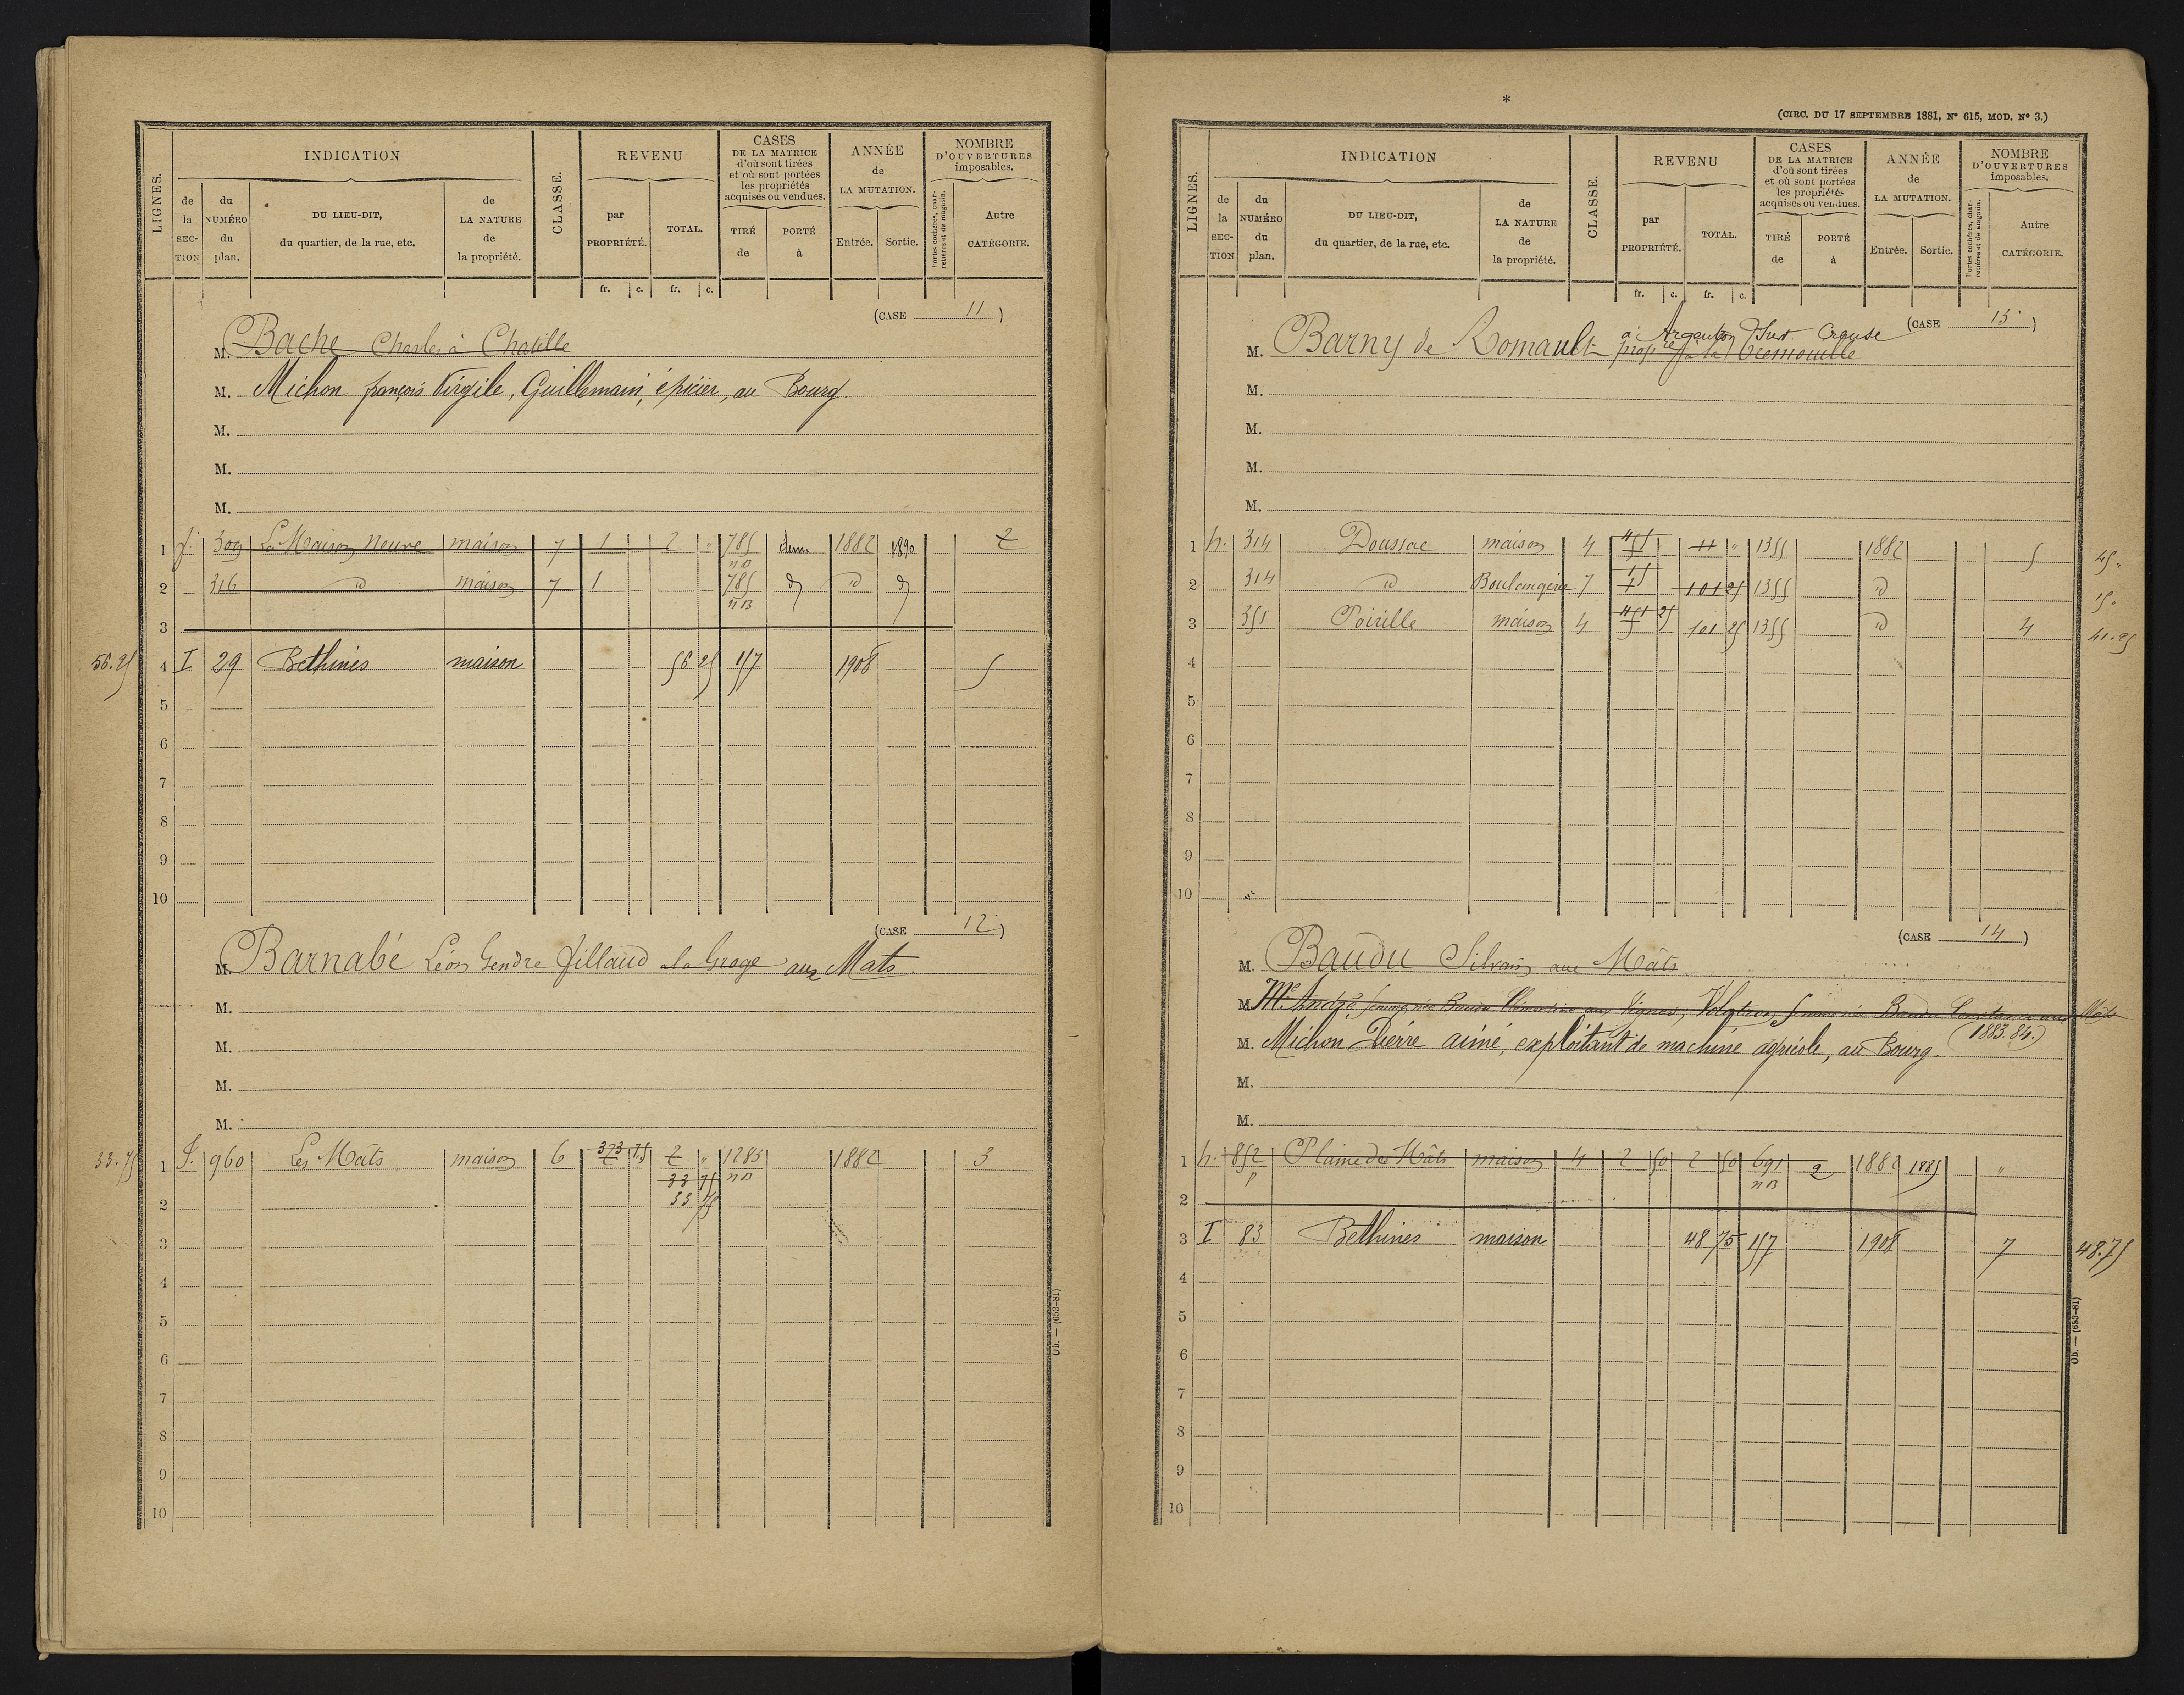 LIGNES.
INDICATION
de la SECTION
du NUMÉRO du plan.
DU LIEU-DIT, du quartier, de la rue, etc.
de LA NATURE de la propriété.
CLASSE.
REVENU
par PROPRIÉTÉ.
TOTAL.
CASES DE LA MATRICE d'où sont tirées et où sont portées les propriétés acquises ou vendues.
TIRÉ de
PORTÉ à
ANNÉE de LA MUTATION.
Entrée.
Sortie.
NOMBRE D'OUVERTURES imposables.
Portes cochères, charretières et de magasin.
Autre CATÉGORIE.
fr. c. fr. c.
(CASE 11)
M. Bache Charles à
M. Michon françois Virgile, Guillemain, épicier, au Bourg.
M.
M.
M.
1 J. 309 La Maison Neuve maison 7 1 2 " 785 dem. 1882 1890 2
nB
2 316 id maison 7 1 785 d id d
nB
3
56.25 4 I 29 Bethines maison 56 25 157 1908 5
5
6
7
8
9
10
(CASE 12)
M. Barnabé Léon Gendre Fillaud aux Mats
M.
M.
M.
M.
33.75 1 J. 960 Les Mats maison 6 75 2 " 1283 1882 3
33 75 nB
2 33 75
3
4
5
6
7
8
9
10
Ob. — (653-81)
*
(CIRC. DU 17 SEPTEMBRE 1881, Nº 615, MOD. Nº 3.)
LIGNES.
INDICATION
de la SECTION
du NUMÉRO du plan.
DU LIEU-DIT, du quartier, de la rue, etc.
de LA NATURE de la propriété.
CLASSE.
REVENU
par PROPRIÉTÉ.
TOTAL.
CASES DE LA MATRICE d'où sont tirées et où sont portées les propriétés acquises ou vendues.
TIRÉ de
PORTÉ à
ANNÉE de LA MUTATION.
Entrée.
Sortie.
NOMBRE D'OUVERTURES imposables.
Portes cochères, charretières et de magasin.
Autre CATÉGORIE.
fr. c. fr. c.
(CASE 13)
à Argenton Sur Creuse
M. Barny de Romault prop.re à la Tremouille
M.
M.
M.
M.
1 h. 314 Doussac maison 4 45 11 " 1355 1882 5 45 "
2 314 id Boulangerie 7 15 101 25 1355 id 15 "
3 355 Poirille maison 4 25 101 25 1355 id 4 41.25
4
5
6
7
8
9
10
(CASE 14)
M. Baudu Silvain aux Mâts
M. Me André femme née Baudu aux Vignes, femme née Baudu Mats
(1883.84.)
M. Michon Pierre aimé, exploitant de machine agricole, au Bourg.
M.
M.
1 h. 852 Plaine des Mâts maison 4 2 50 2 50 691 2 1882 1885 "
p nB
2
3 I 83 Bethines maison 48 75 157 1908 7 48.75
4
5
6
7
8
9
10
Ob. — (653-81)